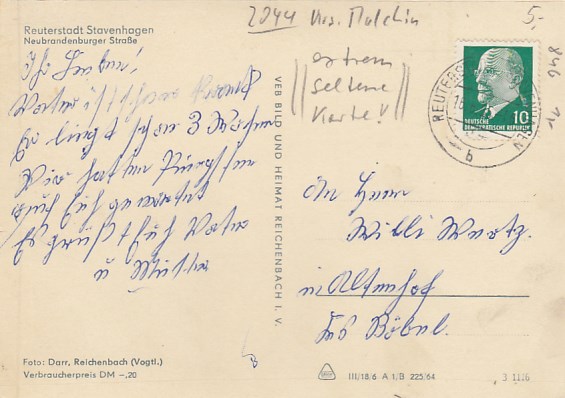 Reuterstadt Stavenhagen
Neubrandenburger Straße
2044 Krs. Malchin
5,-
846
extrem
seltene
Karte!
Ihr Lieben!
Vater ist schon krank
Er liegt schon 3 Wochen
Wir hatten
auch Euch erwartet
Es grüßt Euch Vater
u Mutter
VEB BILD UND HEIMAT REICHENBACH I. V.
10
DEUTSCHE
DEMOKRATISCHE REPUBLIK
b
An Herrn
Willi
in Altenhof
Krs Röbel.
Foto: Darr, Reichenbach (Vogtl.)
Verbraucherpreis DM -,20
III/18/6 A 1/B 225/64
3 1116